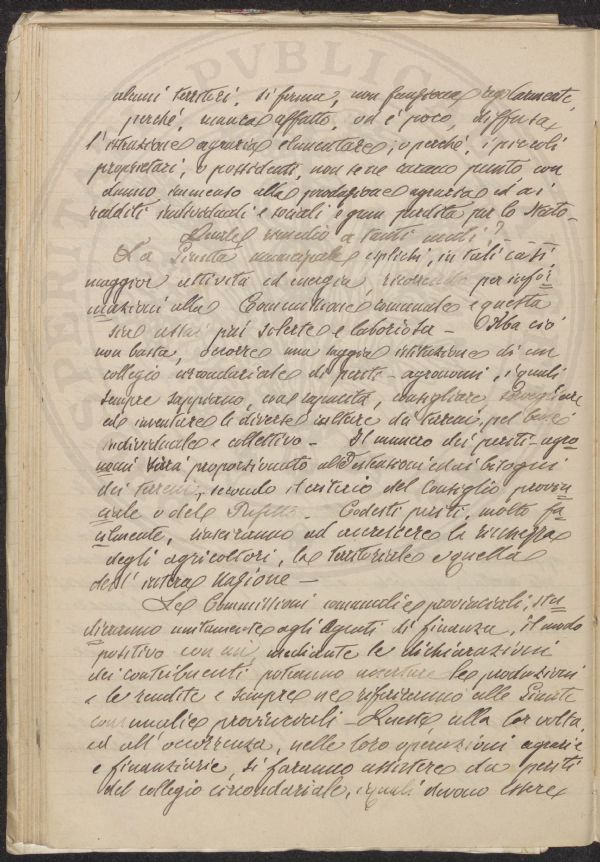 alcuni territori, si ferma, non funziona regolarmente,
perché, manca affatto, od è poco, diffusa
l'istruzione agraria elementare; o perché, i piccoli
proprietari, o possidenti, non se ne curano punto, con
danno immenso alla produzione agraria ed ai
redditi individuali e sociali e gran perdita per lo Stato -
Quale rimedio a tanti mali? -
La Giunta municipale esplichi, in tali casi
maggior attività ed energia, per infor-
mazioni alla Commissione comunale e questa
sia assai più solerte e laboriosa - Ma ciò
non basta, occorre una saggia istituzione di un
collegio circondariale di periti - agronomi, i quali
sempre sappiano, con capacità, consigliare
ed inventare le diverse colture dei terreni, pel bene
individuale e collettivo - Il numero dei periti-agro-
nomi sarà proporzionato all'estensione ed ai bisogni
dei terreni, secondo il criterio del Consiglio provin-
ciale o del Prefetto - Codesti periti, molto fa-
cilmente, riusciranno ad accrescere la ricchezza
degli agricoltori, la territoriale e quella
dell'intera Nazione -
Le Commissioni comunali e provinciali, stu-
dieranno unitamente agli Agenti di finanza, il modo
positivo con cui, mediante le dichiarazioni
dei contribuenti, potranno accertare le produzioni
e le rendite e sempre ne riferiranno alle Giunte
comunali e provinciali - Queste, alla lor volta,
ed all'occorrenza, nelle loro operazioni agrarie
e finanziarie, si faranno assistere da periti
del collegio circondariale, i quali devono essere
PVBLICA